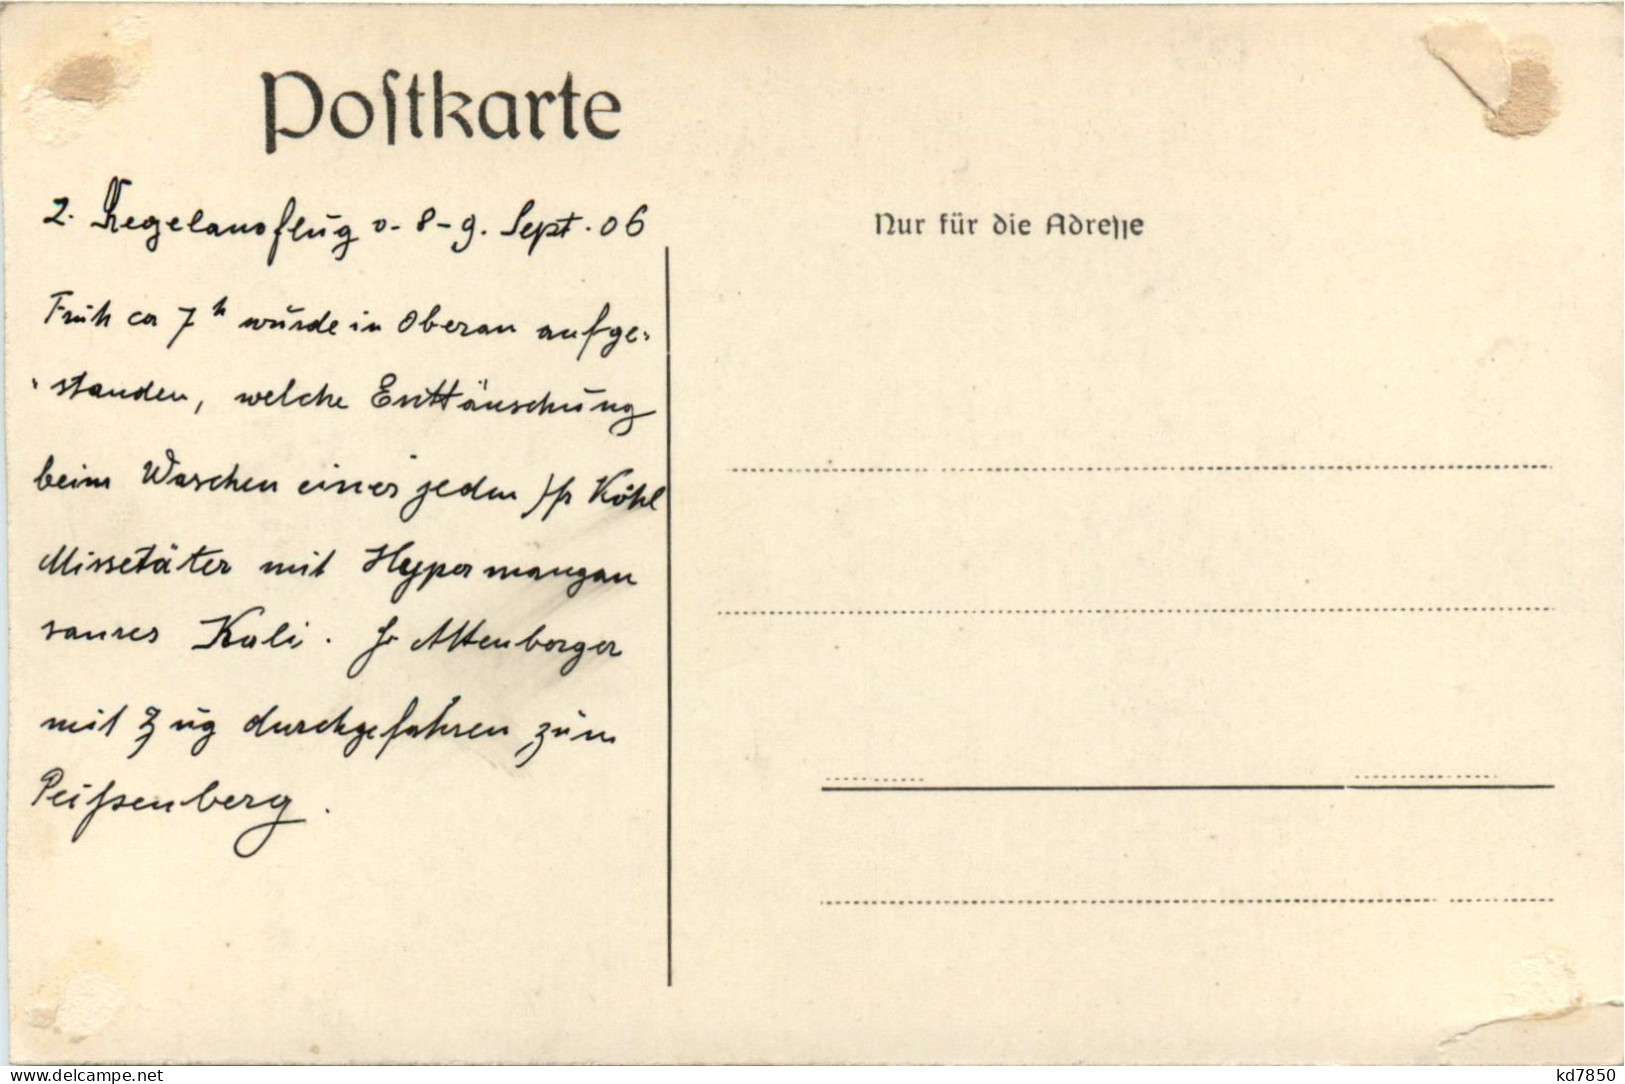 Postkarte
2. Kegelausflug v. 8-9. Sept. 06
Früh ca 7h wurde in Oberau aufge-
standen, welche Enttäuschung
beim Waschen eines jeden Köhl
Missetäter mit Hypermangan
saures Kali. Hr Altenberger
mit Zug durchgefahren zum
Peißenberg.
Nur für die Adresse
www.delcampe.net
kd7850